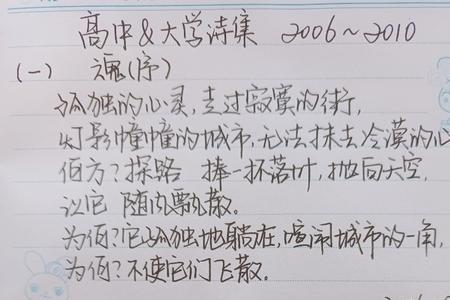 高中&大学诗集 2006~2010
(一) 魂(序)
孤独的心灵,走过寂寞的街,
灯影幢幢的城市,无法抹去冷漠的心
何方?探路 捧一抔落叶,抛向天空,
让它 随风飘散。
为何?它孤独地躺在,喧闹城市的一角,
为何?不使它们飞散。